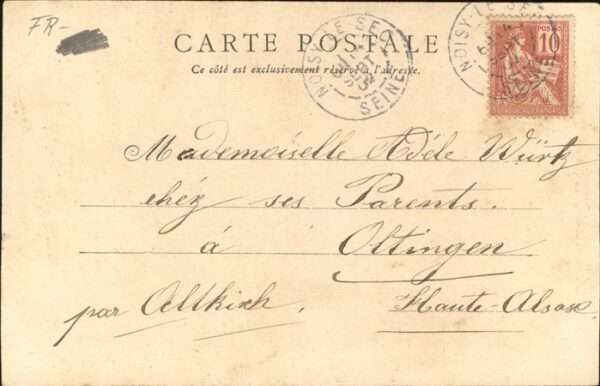 FR-
CARTE POSTALE
Ce côté est exclusivement réservé à l'adresse.
NOISY-LE-SEC
SEINE
NOISY-LE-SEC
POSTES
10
Mademoiselle Adéle Würtz
chéz ses Parents.
à Oltingen
par Altkirch. Haute-Alsace.